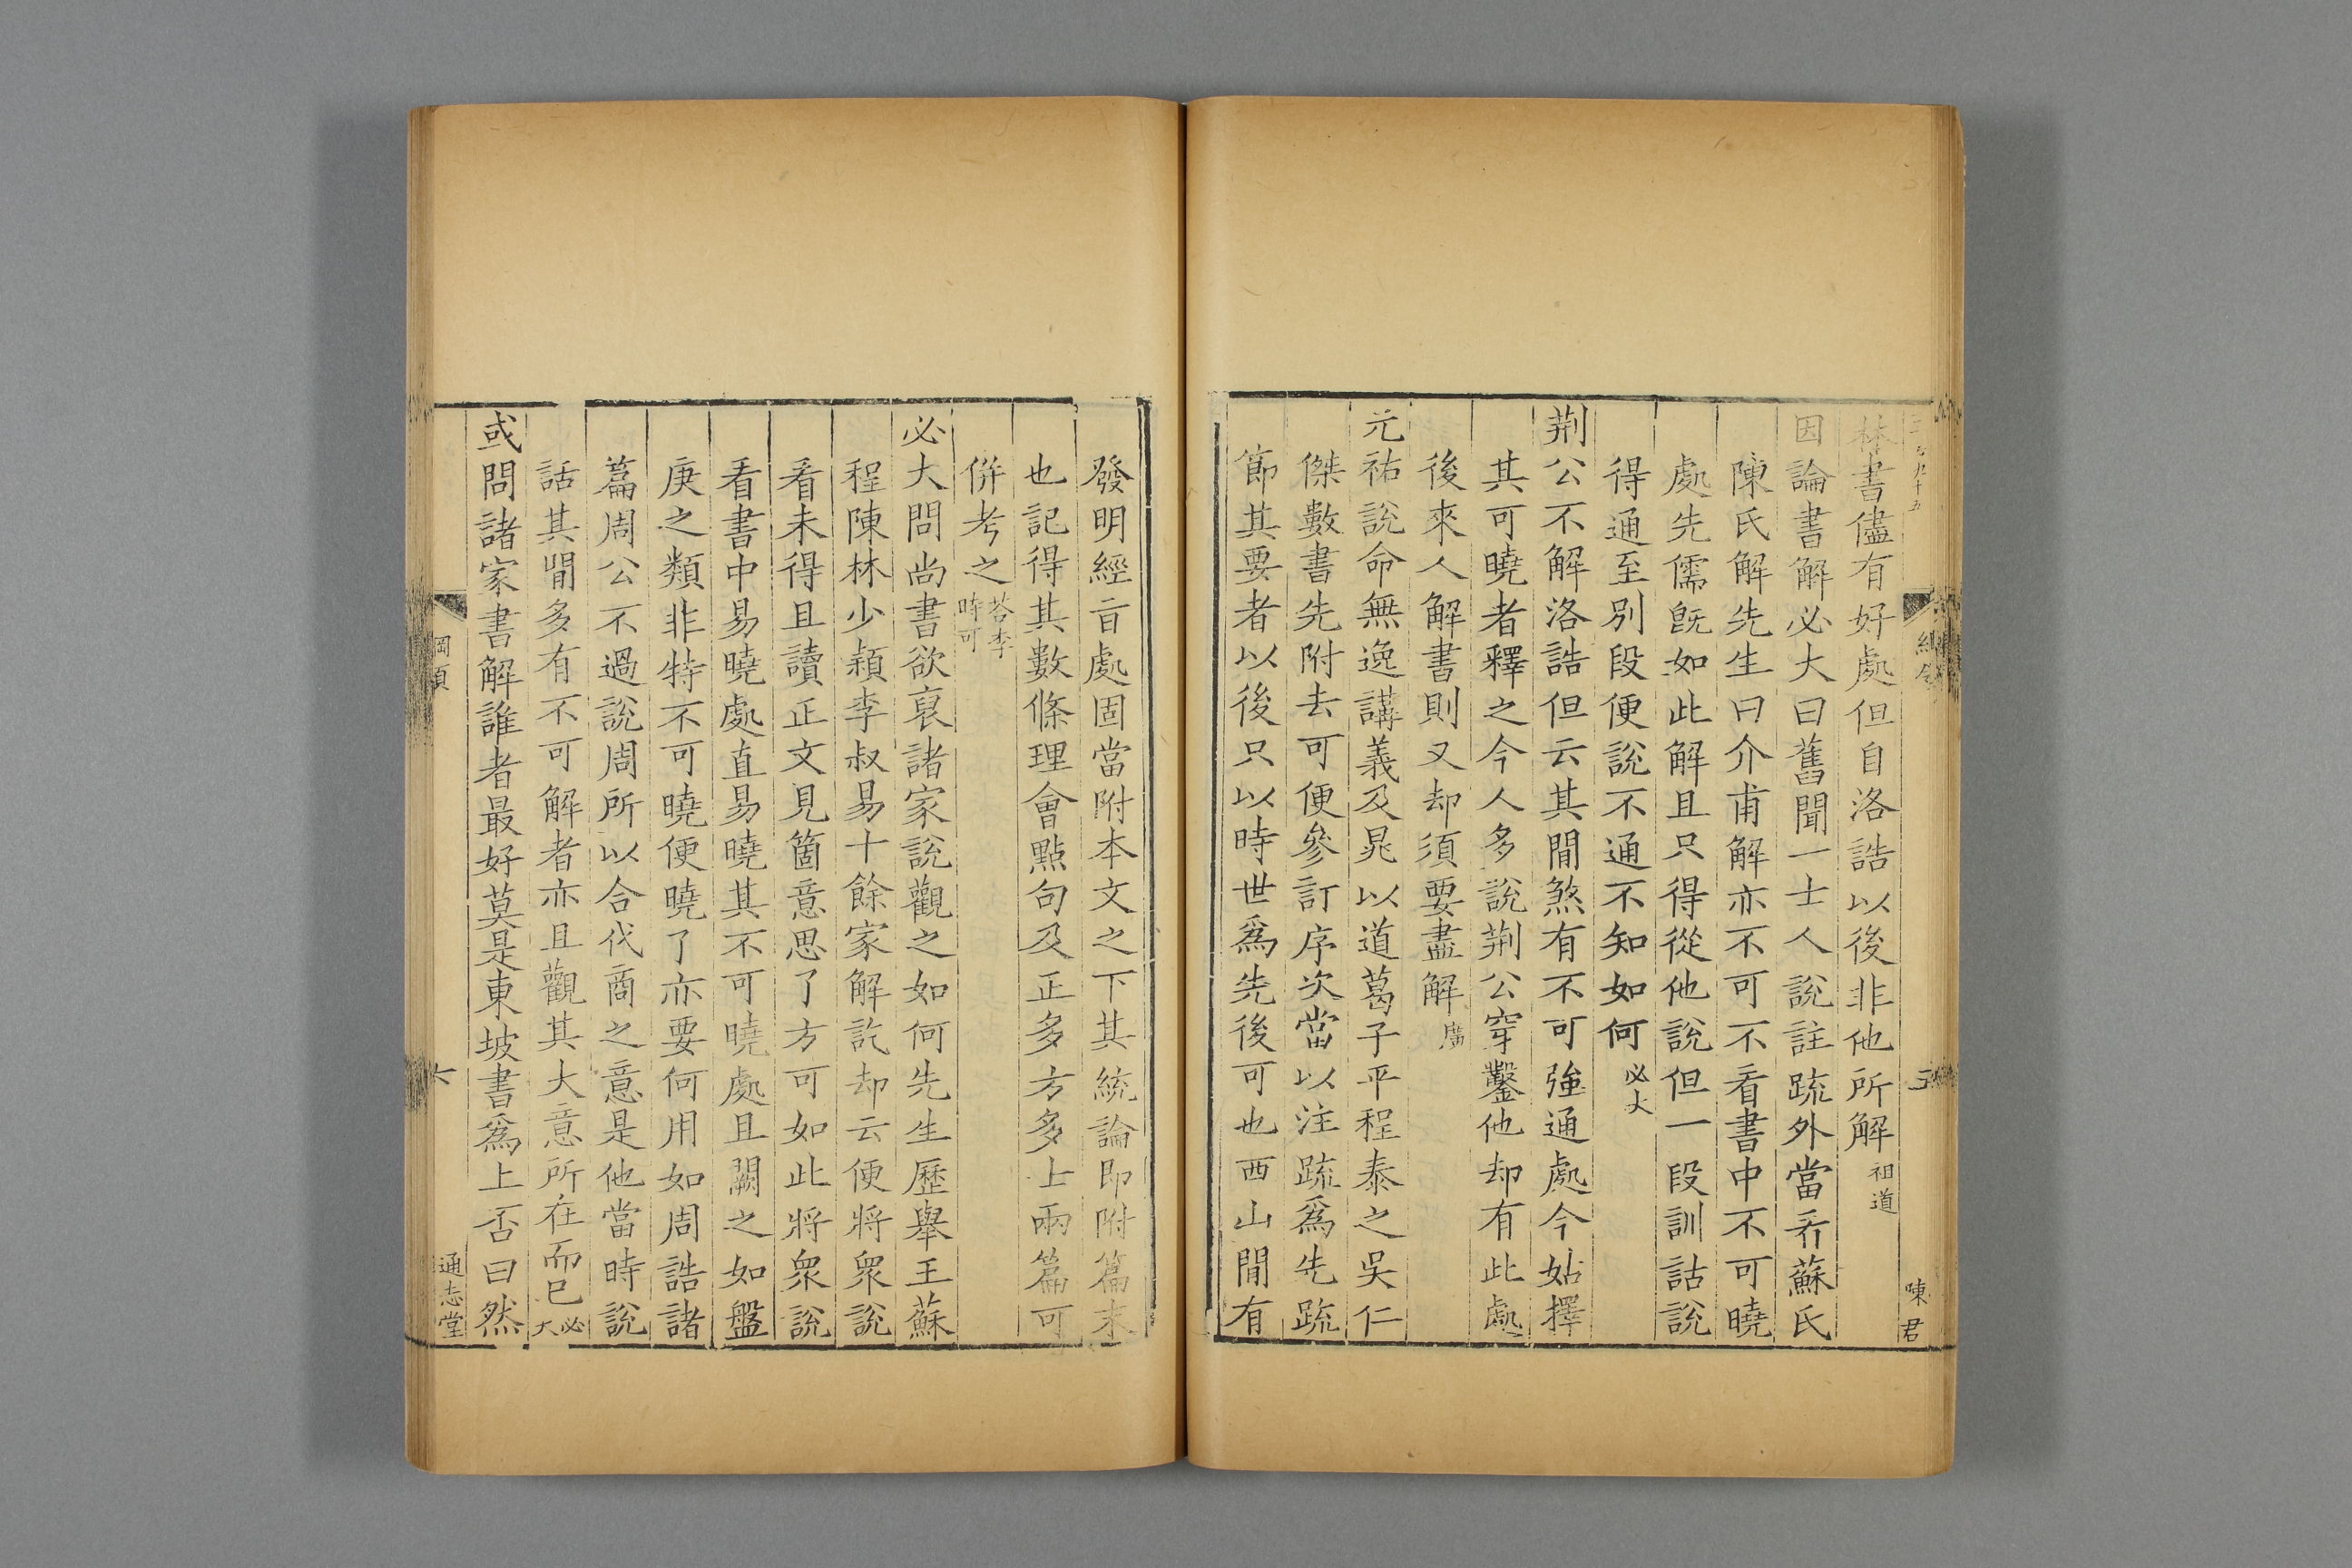 林書儘有好處但自洛誥以後非他所解祖道
因論書解必大曰舊聞一士人說註疏外當看蘇氏
陳氏解先生曰介甫解亦不可不看書中不可曉
處先儒旣如此解且只得從他說但一段訓詁說
得通至別段便說不通不知如何必大
荆公不解洛誥但云其閒煞有不可強通處今姑擇
其可曉者釋之今人多說荆公穿鑿他却有此處
後來人解書則又却須要盡解廣
元祐說命無逸講義及晁以道葛子平程泰之吳仁
傑數書先附去可便參訂序次當以注疏爲先疏
節其要者以後只以時世爲先後可也西山閒有
發明經旨處固當附本文之下其統論卽附篇末
也記得其數條理會點句及正多方多士兩篇可
併考之荅李時可
必大問尚書欲裒諸家說觀之如何先生歷舉王蘇
程陳林少穎李叔易十餘家解訖却云便將衆說
看未得且讀正文見箇意思了方可如此將衆說
看書中易曉處直易曉其不可曉處且闕之如盤
庚之類非特不可曉便曉了亦要何用如周誥諸
篇周公不過說周所以合代商之意是他當時說
話其閒多有不可解者亦且觀其大意所在而已必大
或問諸家書解誰者最好莫是東坡書爲上否曰然
綱領
六
通志堂
陳君